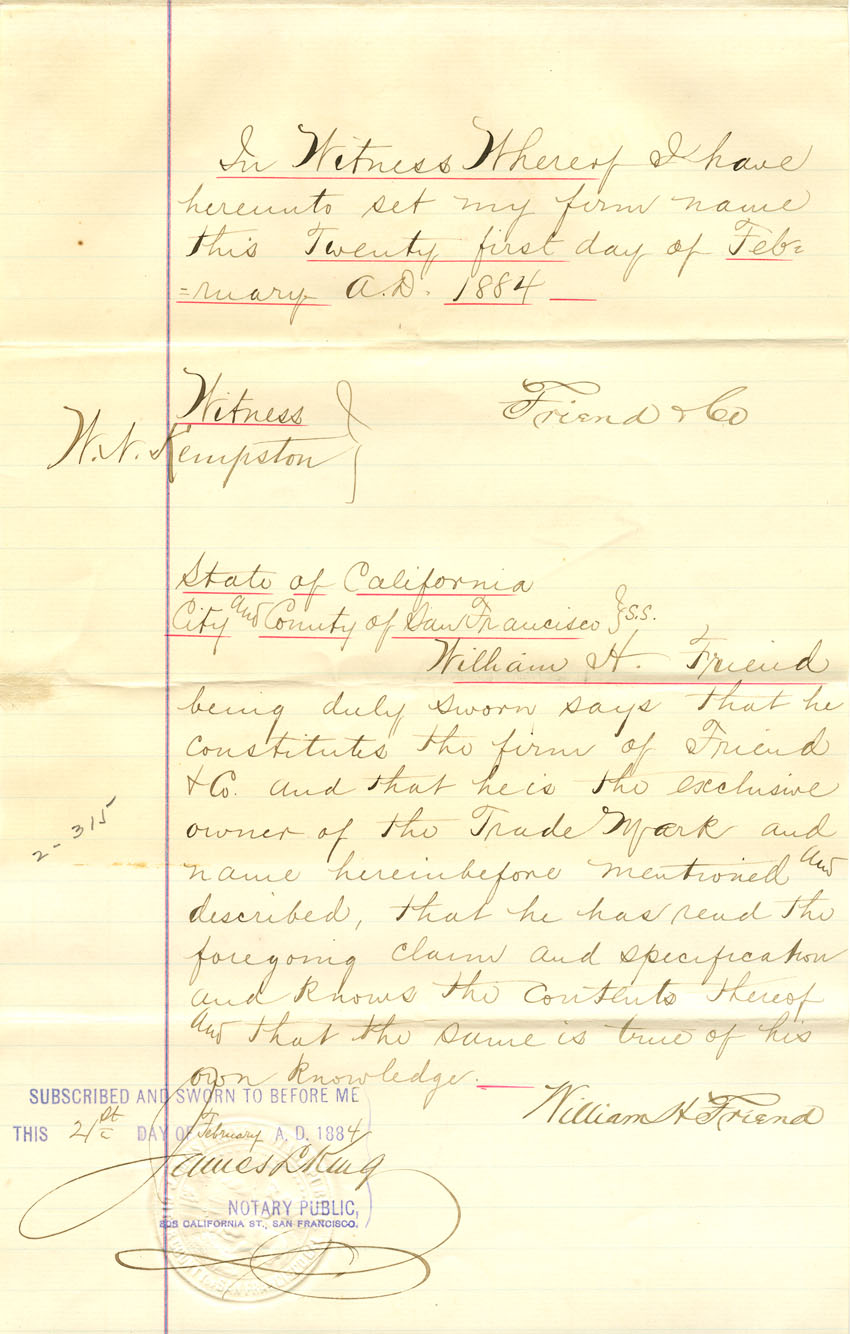 In Witness Whereof I have
hereunto set my firm name
this Twenty first day of Feb=
=ruary A.D. 1884
Witness
Friend & Co
W. N. Kempston
State of California
City and County of San Francisco } S.S.
William H. Friend
being duly sworn says that he
constitutes the firm of Friend
& Co. and that he is the exclusive
owner of the Trade Mark and
name hereinbefore mentioned and
described, that he has read the
foregoing claim and specification
and knows the contents thereof
and that the same is true of his
own knowledge.
William H Friend
SUBSCRIBED AND SWORN TO BEFORE ME
THIS 21st DAY OF February A. D. 1884
James L King
NOTARY PUBLIC,
CALIFORNIA ST., SAN FRANCISCO.
2-315